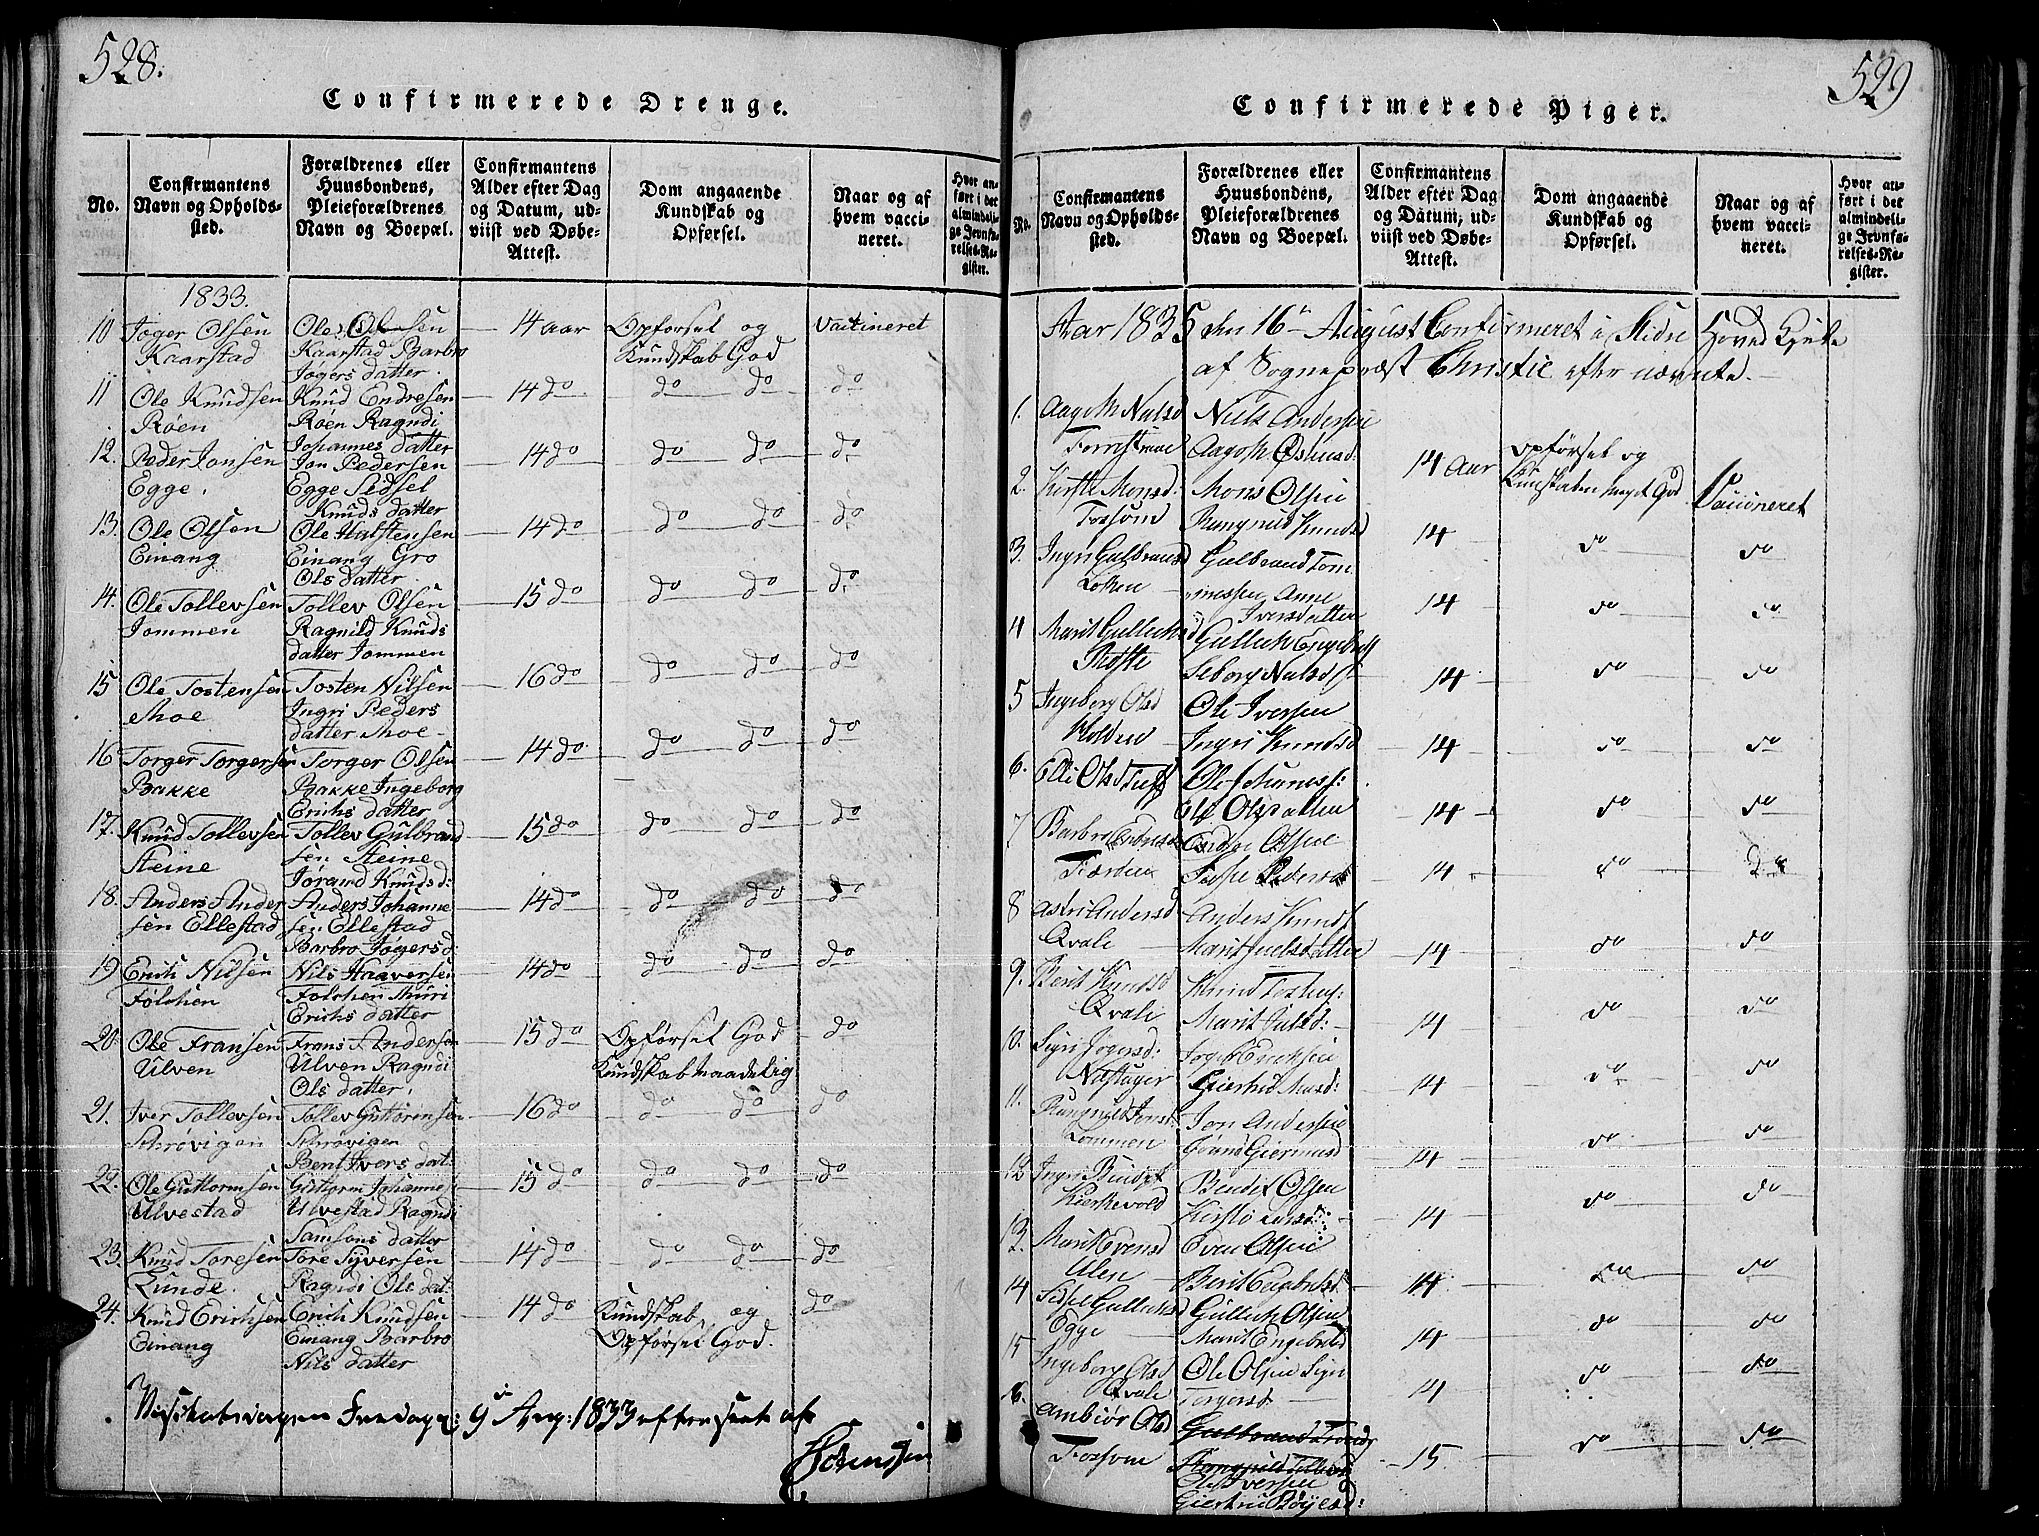 528.
Confirmerede Drenge.
No.
Confirmantens Navn og Opholdssted.
Forældrenes eller Huusbondens, Pleieforældrenes Navn og Boepæl.
Confirmantens Alder efter Dag og Datum, udviist ved Døbe-Attest.
Dom angaaende Kundskab og Opførsel.
Naar og af hvem vaccineret.
Hvor anført i det almindelige Jevnførelses-Register.
1833.
10 Joger Olsen Ole Olsen 14 aar Opførsel og Vaccineret
Kaarstad Kaarstad Barbro Kundskab God
Jogers datter.
11 Ole Knudsen Knud Endresen 14 do do do do
Røen Røen Ragndi
Johannes datter
12. Peder Jonsen Jon Pedersen 14 do do do do
Egge. Egge Sidsel
Knuds datter
13. Ole Olsen Ole Halstensen 14 do do do do
Einang Einang Gro
Ols datter
14. Ole Tollevsen Tollev Olsen 15 do do do do
Jommen Ragnild Knuds
datter Jommen
15 Ole Tostensen Tosten Nilsen 16 do do do do
Moe Ingri Peders
datter Moe
16 Torger Torgersen Torger Olsen 14 do do do do
Bakke Bakke Ingeborg
Erichs datter
17. Knud Tollevsen Tollev Gulbrand 15 do do do do
Steine sen Steine
Jørand Knudsd:
18. Anders Ander Anders Johanne 14 do do do do
sen Ellestad sen Ellestad
Barbro Jogersd:
19 Erich Nilsen Nils Haaversen 14 do do do do
Følchen Følchen Muri
Erichs datter
20. Ole Fransen Frans Andersen 15 do Opførsel God do
Ulven Ulven Ragndi Kundskab maadelig
Ols datter
21. Iver Tollevsen Tollev Guttormsen 16 do do do do
Schrøvigen Schrøvigen
Berit Ivers dat:
22. Ole Guttormsen Guttorm Johanne 15 do do do do
Ulvestad Ulvestad Ragndi
Samsons datter
23. Knud Toresen Tore Syversen 14 do do do do
Lunde. Ragndi Ole dat:
24. Knud Erichsen Erich Knudsen 14 do Kundskab og do
Einang Einang Barbro Opførsel God.
Nils datter
9 Aug: 1833 efterseet af
529
Confirmerede Piger.
No.
Confirmantens Navn og Opholdssted.
Forældrenes eller Huusbondens, Pleieforældrenes Navn og Boepæl.
Confirmantens Alder efter Dag og Datum, udviist ved Døbe-Attest.
Dom angaaende Kundskab og Opførsel.
Naar og af hvem vaccineret.
Hvor anført i det almindelige Jevnførelses-Register.
Aar 1835 den 16 August Confirmeret i Slidre Hoved Kirke
af Sognepræst Christie efter nævnte.
1. Aagoth Nilsd Niels Andersen
Aagoth 14 Aar Opførsel og
2. Kirsti Monsd. Mons Olsen Kundskaben meget God Vaccineret
Fossom Rangnild Knudsd 14 do do
3. Ingri Gulbransd Gulbrand Tom
Lohen mesen Anne
Iversdatter 14 do do
4 Marit Gullichsd Gullich Engebrets
14 do do
5 Ingeborg Olsd Ole Iversen
Holden Ingri Knudsd 14 do do
6. Elli Olsd
Olsdatter 14 do do
7 Barbro Endresd Endre Olsen
14 do do
8 Astri Andersd Anders Knuds
Qvale Marit 14 do do
9. Berit Knudsd Knud
Qvale Marit 14 do do
10. Sigri Jogersd: Joger Ericksen
14 do do
11. Rangnild Jonsd Jon Andersen
Lommen 14 do do
12 Ingri Bendixd Bendix Olsen
Kierkevold Kirsti 14 do do
13. Marit Evensd Even Olsen
Ulen Berit 14 do do
14 Sidsel Gullichsd Gullich Olsen
Egge Marit Engebretsd 14 do do
15 Ingeborg Olsd Ole Olsen Sigri
Qvale Torgersd 14 do do
16. Ambiør Olsd
Fossom 15 do do
Ole Iversen